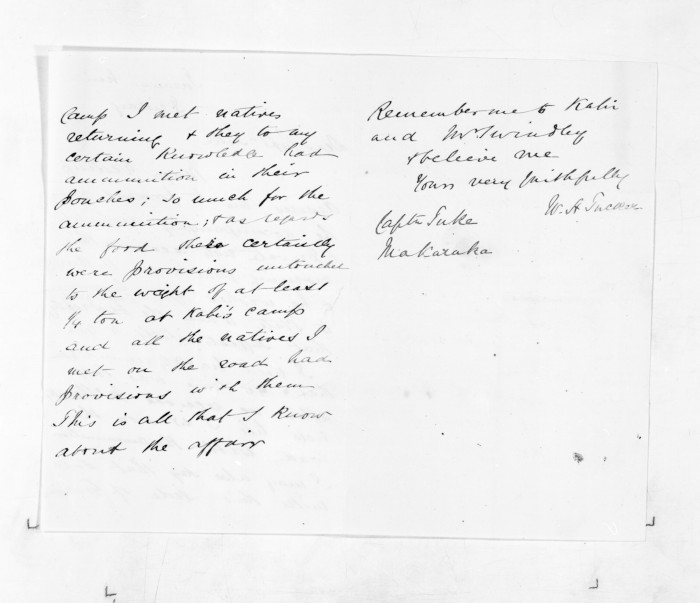 Camp I met natives
returning & they to my
certain knowledge had
ammunition in their
pouches; so much for the
ammunition; & as regards
the food there certainly
were provisions untouched
to the weight of at least
1/4 ton at Kabi's camp
and all the natives I
met on the road had
provisions with them
This is all that I know
about the affair
Remember me to Kabi
and Mr Swindley
& believe me
Yours very faithfully
W. H. Tucker
Captn Tuke
Makaraka